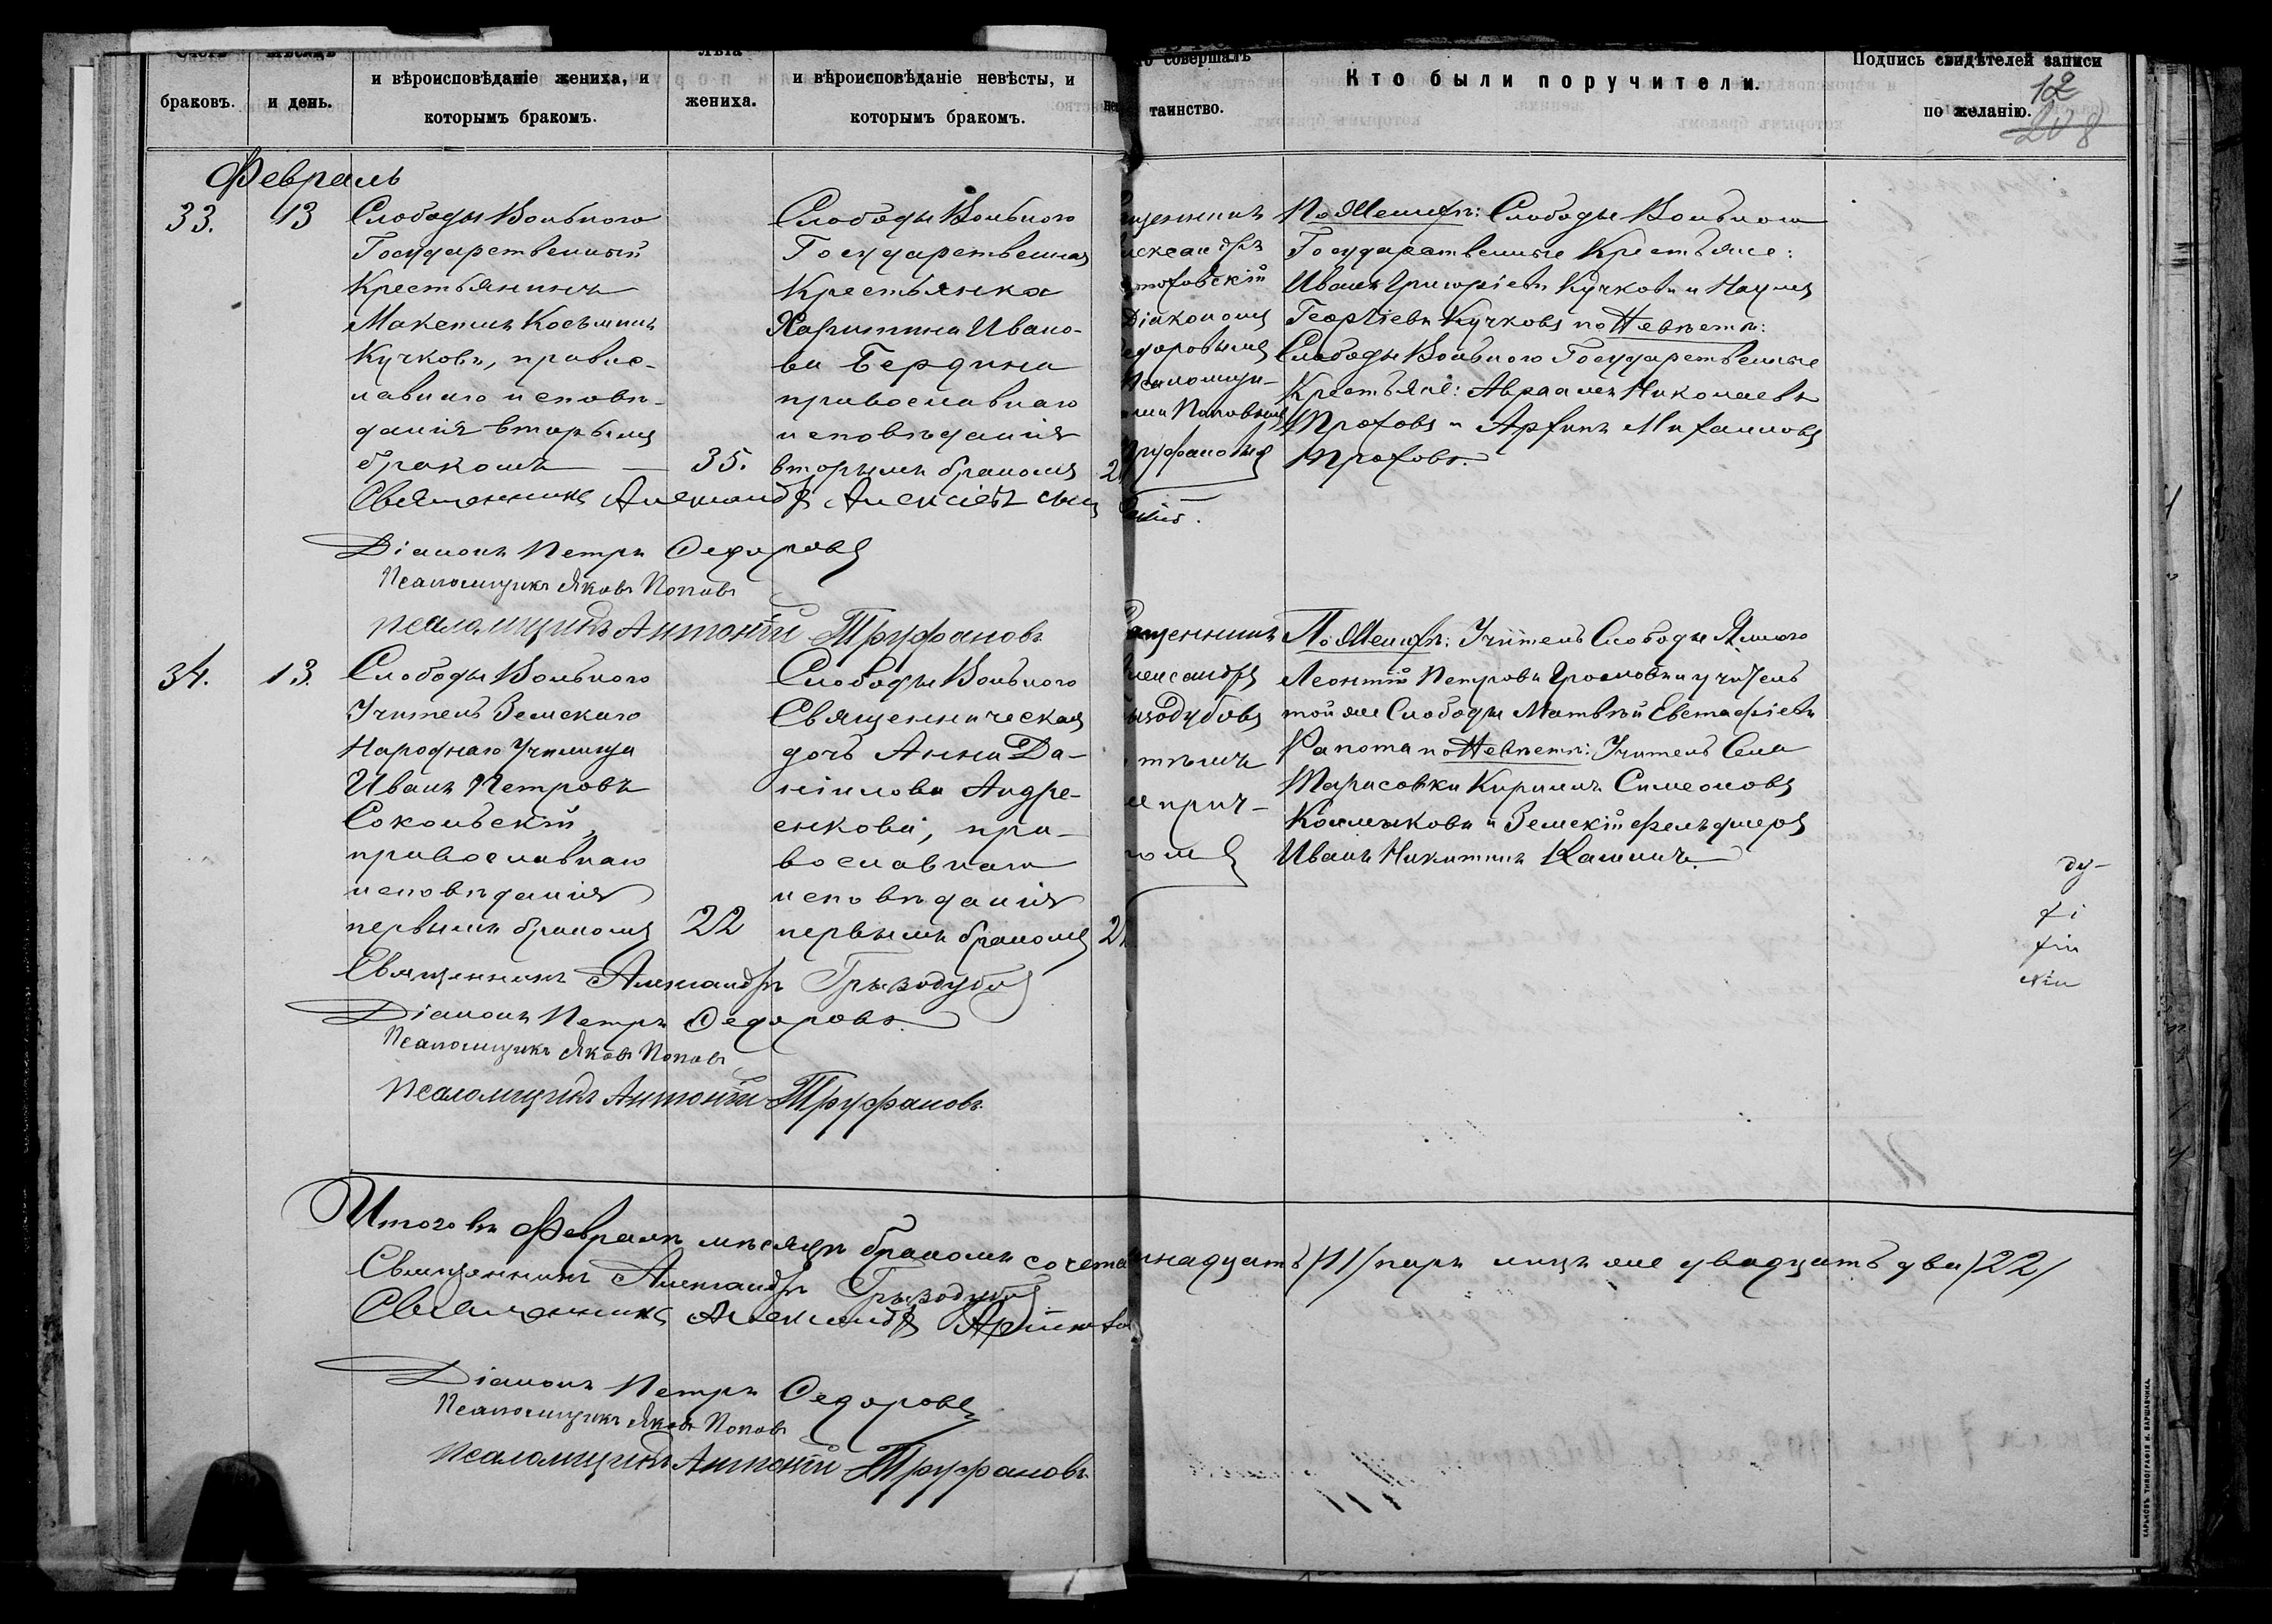 браковъ.
и день.
и вѣроисповѣданіе жениха, и
которымъ бракомъ.
Лѣта
жениха.
и вѣроисповѣданіе невѣсты, и
которымъ бракомъ.
совершалъ
таинство.
Кто были поручители.
Подпись свидѣтелей записи
по желанію.
12
Февраль
33.
13
Слободы Вольного
Государственный
Крестьянинъ
Максимъ Косьминъ
Кучковъ, правос-
лавнаго исповѣ-
данія вторымъ
бракомъ
35.
Слободы Вольного
Государственная
Крестьянка
Харитина Ивано-
ва Бердина
православнаго
исповѣданія
вторымъ бракомъ
2
щенникъ
лександръ
тоховскій
Діакономъ
едоровымъ
Псаломщи-
ами Поповымъ
Труфановымъ
По Женихѣ: Слободы Вольного
Государственные Крестьяне:
Иванъ Григоріевъ Кучковъ и Наумъ
Георгіевъ Кучковъ по Невѣстѣ:
Слободы Вольного Государственные
Крестьяне: Авраамъ Николаевъ
Трофовъ и Архипъ Михаиловъ
Трофовъ.
Священникъ Александръ Алексіевъ сын
Діаконъ Петръ Федоровъ
Псаломщикъ Яковъ Поповъ
Псаломщикъ Антоній Труфановъ
34.
13.
Слободы Вольного
Учитель Земскаго
Народнаго Училища
Иванъ Петровъ
Сокольскій,
православнаго
исповѣданія
первымъ бракомъ
22
Слободы Вольного
Священническая
дочь Анна Да-
ніилова Андре-
енкова, пра-
вославнаго
исповѣданія
первымъ бракомъ
2
ященникъ
лександръ
ызодубовъ
тѣмъ
же прич-
томъ
По Женихѣ: Учитель Слободы Ямного
Леонтій Петровъ Громовъ и учитель
той же Слободы Матвѣй Евстафіевъ
Рапота по Невѣстѣ: Учитель Села
Тарасовки Кириллъ Симеоновъ
Колмыковъ и Земскій фельдшеръ
Иванъ Никитинъ Калинич.
Священникъ Александръ Грызодубовъ
Діаконъ Петръ Федоровъ.
Псаломщикъ Яковъ Поповъ
Псаломщикъ Антоній Труфановъ.
Итого въ Февралѣ мѣсяцѣ бракомъ сочета надцать /11/ паръ лицъ же двадцать два /22/
Священникъ Александръ Грызодубовъ
Священникъ Александръ
Діаконъ Петръ Федоровъ
Псаломщикъ Яковъ Поповъ
Псаломщикъ Антоній Труфановъ.
ХАРЬКОВЪ ТИПОГРАФІЯ И. ВАРШАВЧИКА.